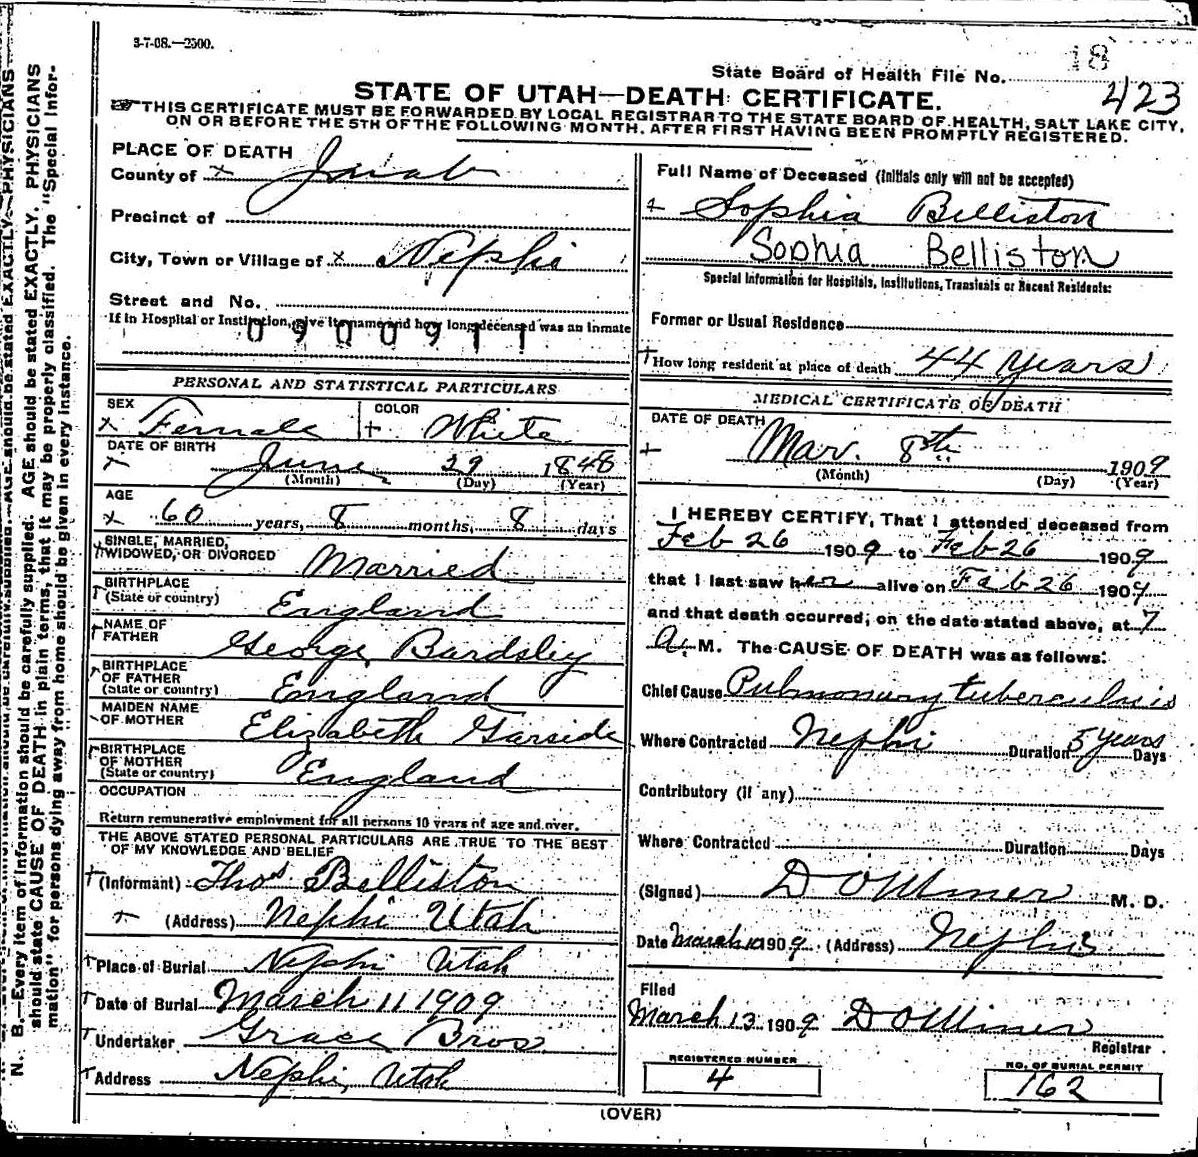 3-7-08.—2500.
18
State Board of Health File No.
423
STATE OF UTAH—DEATH CERTIFICATE.
THIS CERTIFICATE MUST BE FORWARDED BY LOCAL REGISTRAR TO THE STATE BOARD OF HEALTH, SALT LAKE CITY,
ON OR BEFORE THE 5TH OF THE FOLLOWING MONTH, AFTER FIRST HAVING BEEN PROMPTLY REGISTERED.
N. B.—Every item of information should be carefully supplied. AGE should be stated EXACTLY. PHYSICIANS
should state CAUSE OF DEATH in plain terms, that it may be properly classified. The "Special Infor-
mation" for persons dying away from home should be given in every instance.
PLACE OF DEATH
County of x Juab
Precinct of
City, Town or Village of x Nephi
Street and No.
If in Hospital or Institution, give its name and how long deceased was an inmate
0900911
PERSONAL AND STATISTICAL PARTICULARS
SEX
x Female
COLOR
+ White
DATE OF BIRTH
x June 29 1848
(Month) (Day) (Year)
AGE
x 60 years, 8 months, 8 days
SINGLE, MARRIED,
WIDOWED, OR DIVORCED Married
BIRTHPLACE
(State or country) England
NAME OF
FATHER George Bardsley
BIRTHPLACE
OF FATHER
(State or country) England
MAIDEN NAME
OF MOTHER Elizabeth Garside
BIRTHPLACE
OF MOTHER
(State or country) England
OCCUPATION
Return remunerative employment for all persons 10 years of age and over.
THE ABOVE STATED PERSONAL PARTICULARS ARE TRUE TO THE BEST
OF MY KNOWLEDGE AND BELIEF
(Informant) Thos Belliston
(Address) Nephi Utah
Place of Burial Nephi Utah
Date of Burial March 11 1909
Undertaker Grace Bros
Address Nephi, Utah
Full Name of Deceased (Initials only will not be accepted)
+ Sophia Belliston
Sophia Belliston
Special Information for Hospitals, Institutions, Transients or Recent Residents:
Former or Usual Residence
+ How long resident at place of death 44 years
MEDICAL CERTIFICATE OF DEATH
DATE OF DEATH
+ Mar. 8th 1909
(Month) (Day) (Year)
I HEREBY CERTIFY, That I attended deceased from
Feb 26 1909 to Feb 26 1909
that I last saw her alive on Feb 26 1909
and that death occurred, on the date stated above, at 7
A. M. The CAUSE OF DEATH was as follows:
Chief Cause Pulmonary tuberculosis
Where Contracted Nephi Duration 5 years Days
Contributory (if any)
Where Contracted Duration Days
(Signed) D O Miner M. D.
Date March 10 1909 (Address) Nephi
Filed
March 13 1909 D O Miner
Registrar
REGISTERED NUMBER
4
NO. OF BURIAL PERMIT
162
(OVER)